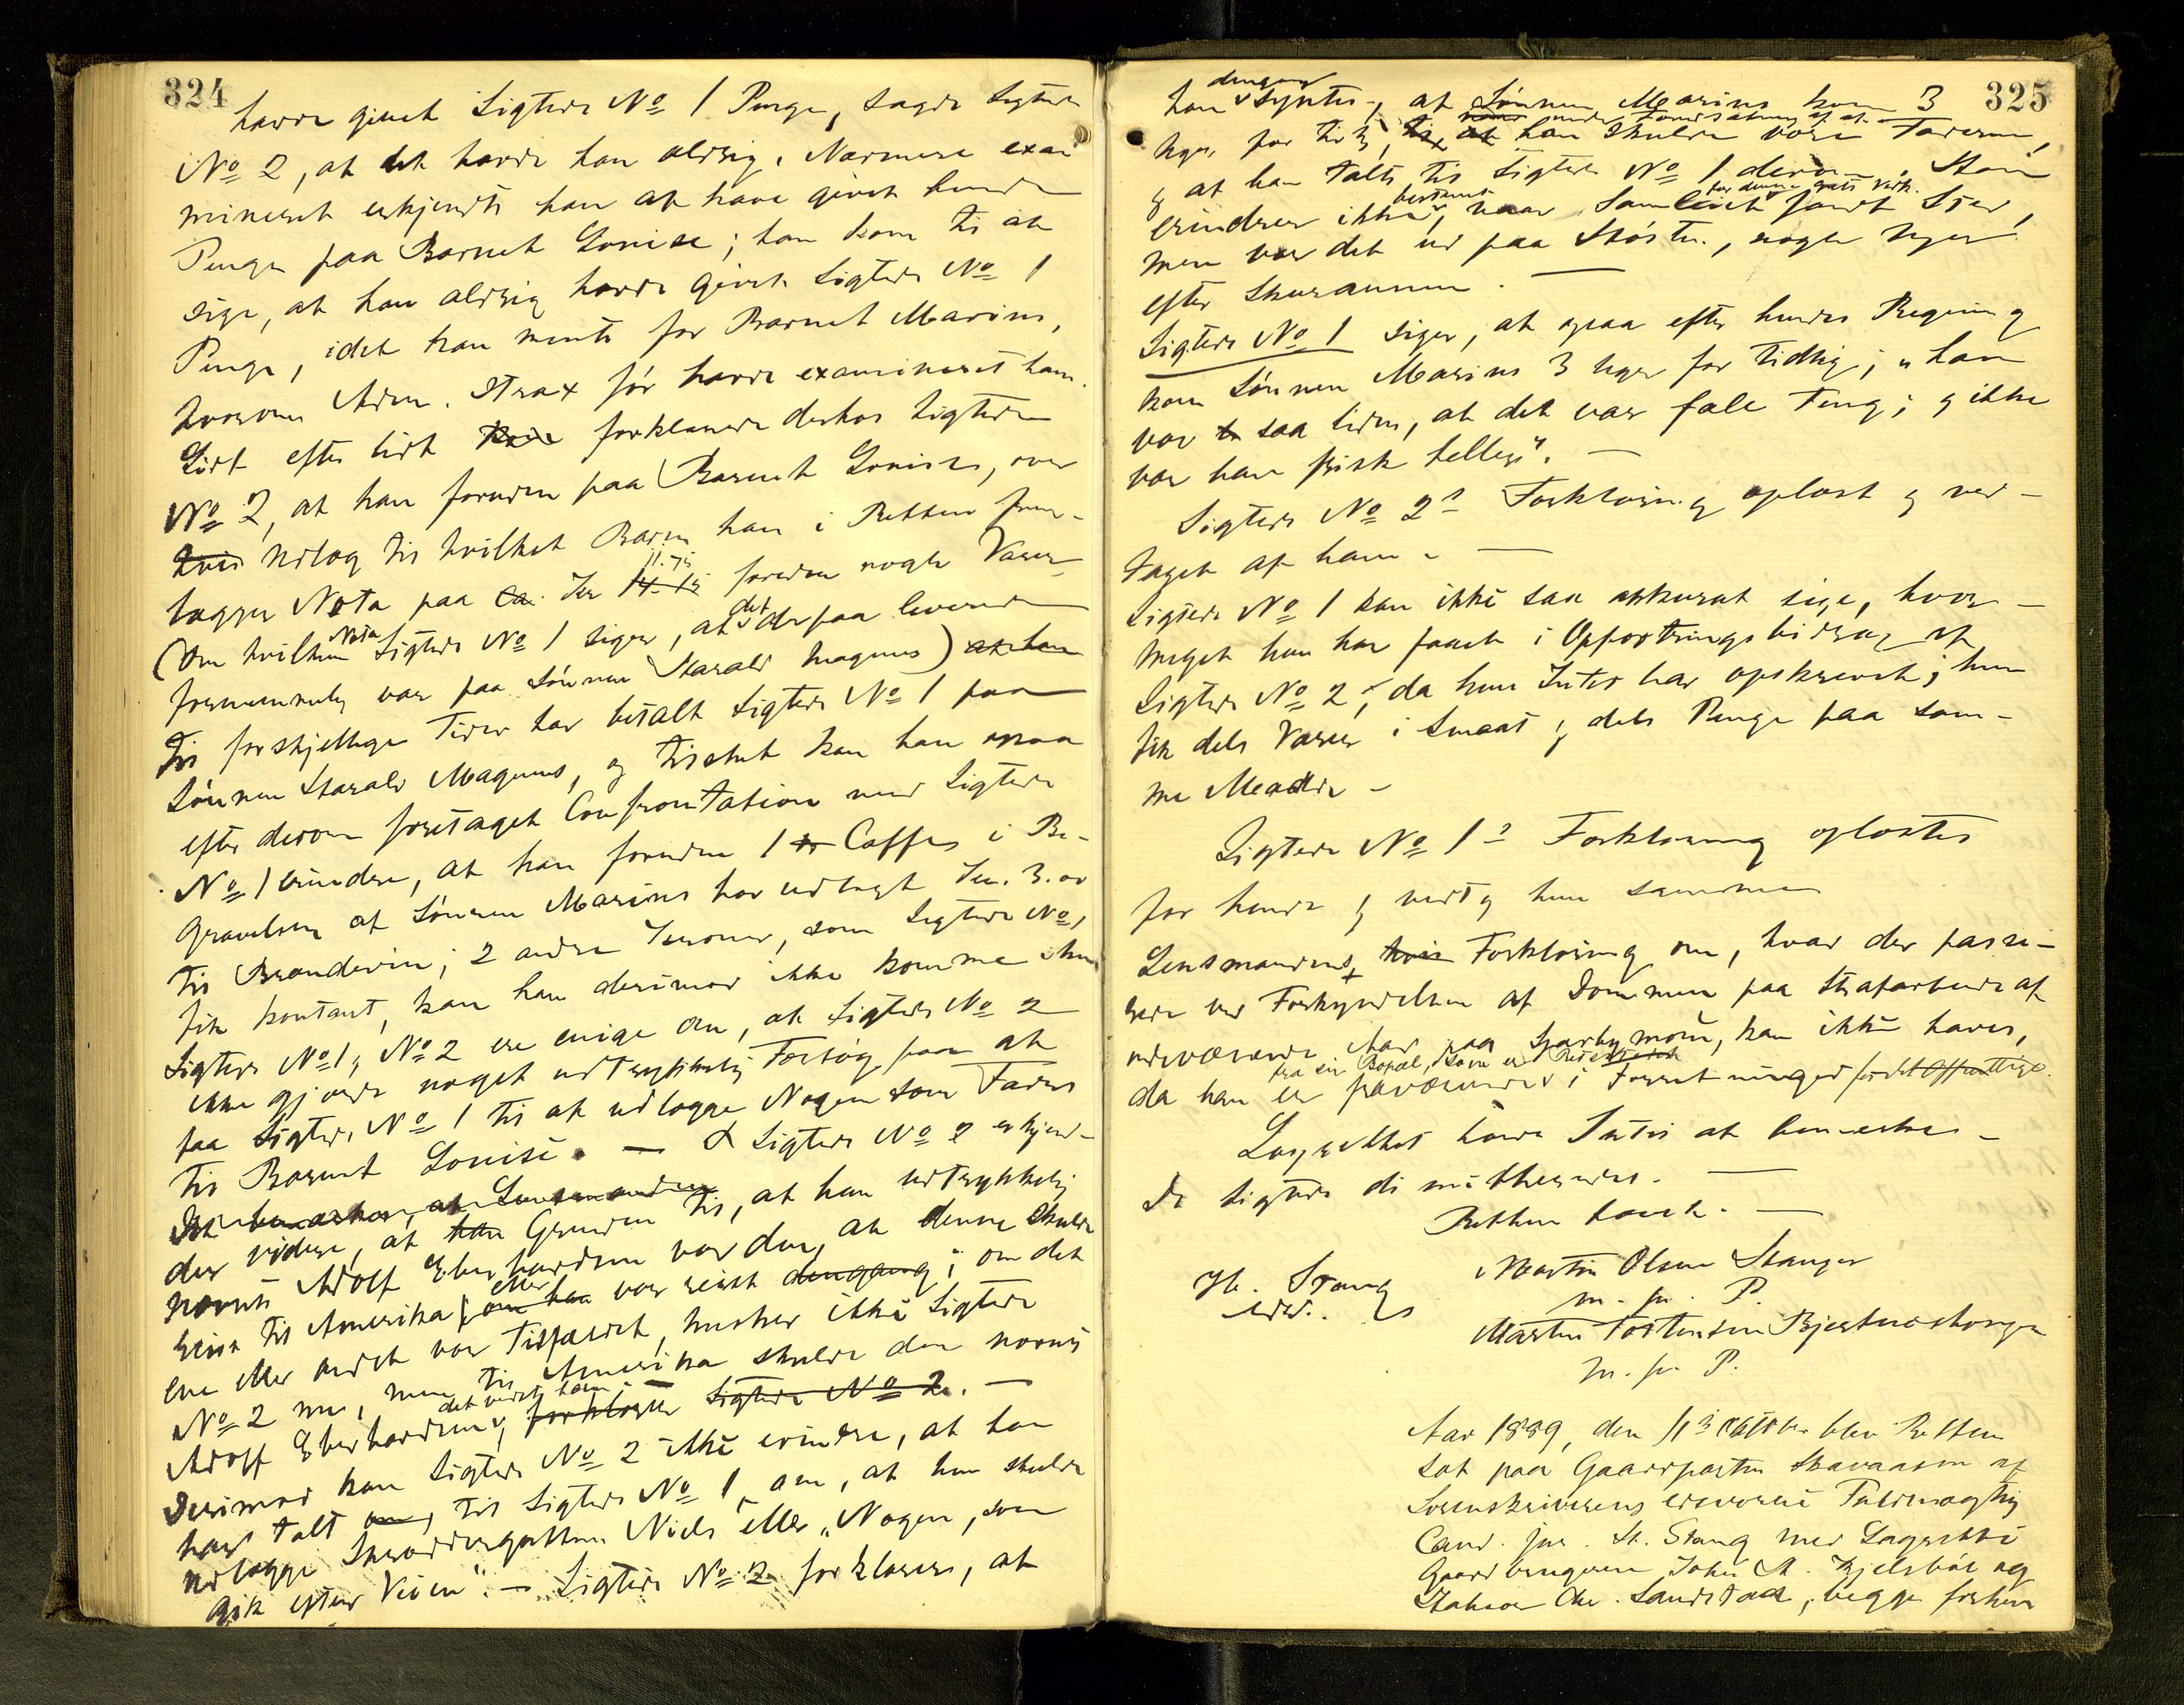 324
havde givet Sigtede No 1 Penge, sagde Sigtede
No 2, at det havde han aldrig. Nærmere exa
mineret erkjendte han at have givet hende
Penge paa Barnet Lovise; han kom til at
sige, at han aldrig havde givet Sigtede No 1
Penge, idet han mente for Barnet Marius,
hvorom Adm. strax før havde examineret ham.
Lidt efter lidt forklarede derhos Sigtede
No 2, at han foruden paa Barnet Lovise, over
hvis Udlæg til hvilket Barn han i Retten frem-
lægger Nota paa ca. Kr 14.15 11.75 foruden nogle Varer
(om hvilken Nota Sigtede No 1 siger, at det derpaa leverede
formentlig var paa Sønnen Harald Magnus) at han
til forskjellige Tider har betalt Sigtede No 1 paa
Sønnen Harald Magnus, og tilslut kan han ogsaa
efter derom foretaget Confrontation med Sigtede
No 1 erindre, at han foruden 1 Caffe i Be-
gravelsen af Sønnen Marius har udlagt Kr. 3.00
til Brændevin; 2 andre Kroner, som Sigtede No 1
fik kontant, kan han derimod ikke komme ihu
Sigtede No 1 og No 2 ere enige om, at Sigtede No 2
ikke gjorde noget udtrykkelig Forsøg paa at
faa Sigtede No 1 til at udlægge Nogen som Fader
til Barnet Lovise. — Sigtede No 2 erkjen-
Det bemærkes, at Lensmanden
der videre, at han Grunden til, at han udtrykkelig
nævnte Adolf Eberhardsen var den, at denne skulde
reise til Amerika eller om han var reist dengang; om det
ene eller andet var Tilfældet, husker ikke Sigtede
No 2 nu, men til Amerika skulde den nævnte
Adolf Eberhardsen, det vidste han. forklarer Sigtede No 2. —
Derimod kan Sigtede No 2 ikke erindre, at han
har talt om, til Sigtede No 1 om, at hun skulde
udlægge Skræddergutten Niels eller "Nogen, som
gik efter Veien". — Sigtede No 2 forklarer, at
325
han dengang syntes, at Sønnen Marius kom 3
Uger for tidlig, under Forudsætning af at han skulde være Faderen,
og at han talte til Sigtede No 1 derom. Han
erindrer ikke bestemt, naar Samleiet fandt Sted,
men var det ud paa Høsten, nogle Uger
efter Skuraannen. —
Sigtede No 1 siger, at ogsaa efter hendes Regning
kom Sønnen Marius 3 Uger for tidlig; "han
var saa liden, at det var fale Ting; og ikke
var han frisk heller". —
Sigtede No 2s Forklaring oplæst og ved-
taget af ham. —
Sigtede No 1 kan ikke saa akkurat sige, hvor-
meget hun har faaet i Opfostringsbidrag af
Sigtede No 2, da hun Intet har opskrevet; hun
fik dels Varer i Smaat og dels Penge paa sam-
me Maade —
Sigtede No 1s Forklaring oplæstes
for hende og vedtog hun samme
Lensmandens Forklaring om, hvad der passe-
rede ved Forkyndelsen af Dommen paa Strafarbeide af
udeværende Aar paa, kan ikke haves,
da han er fraværende fra sin Bopæl, i Forretninger for det Offentlige.
Lagrettet havde Intet at bemærke —
De Sigtede di mitteredes. —
Retten hævet. —
H. Stang
edsv.
Martin Olsen Stanger
m. p. P.
Martin Torstensen Bjertnæshagen
m. p. P.
Aar 1889, den 11te Oktober blev Retten
sat paa Gaardparten af
Sorenskriverens edsvorne Fuldmægtig
Cand. jur. H. Stang med Lagrette
Gaardbrugerne Johs A. Kjelsbøl og
Chr. Sandstad, begge forhen